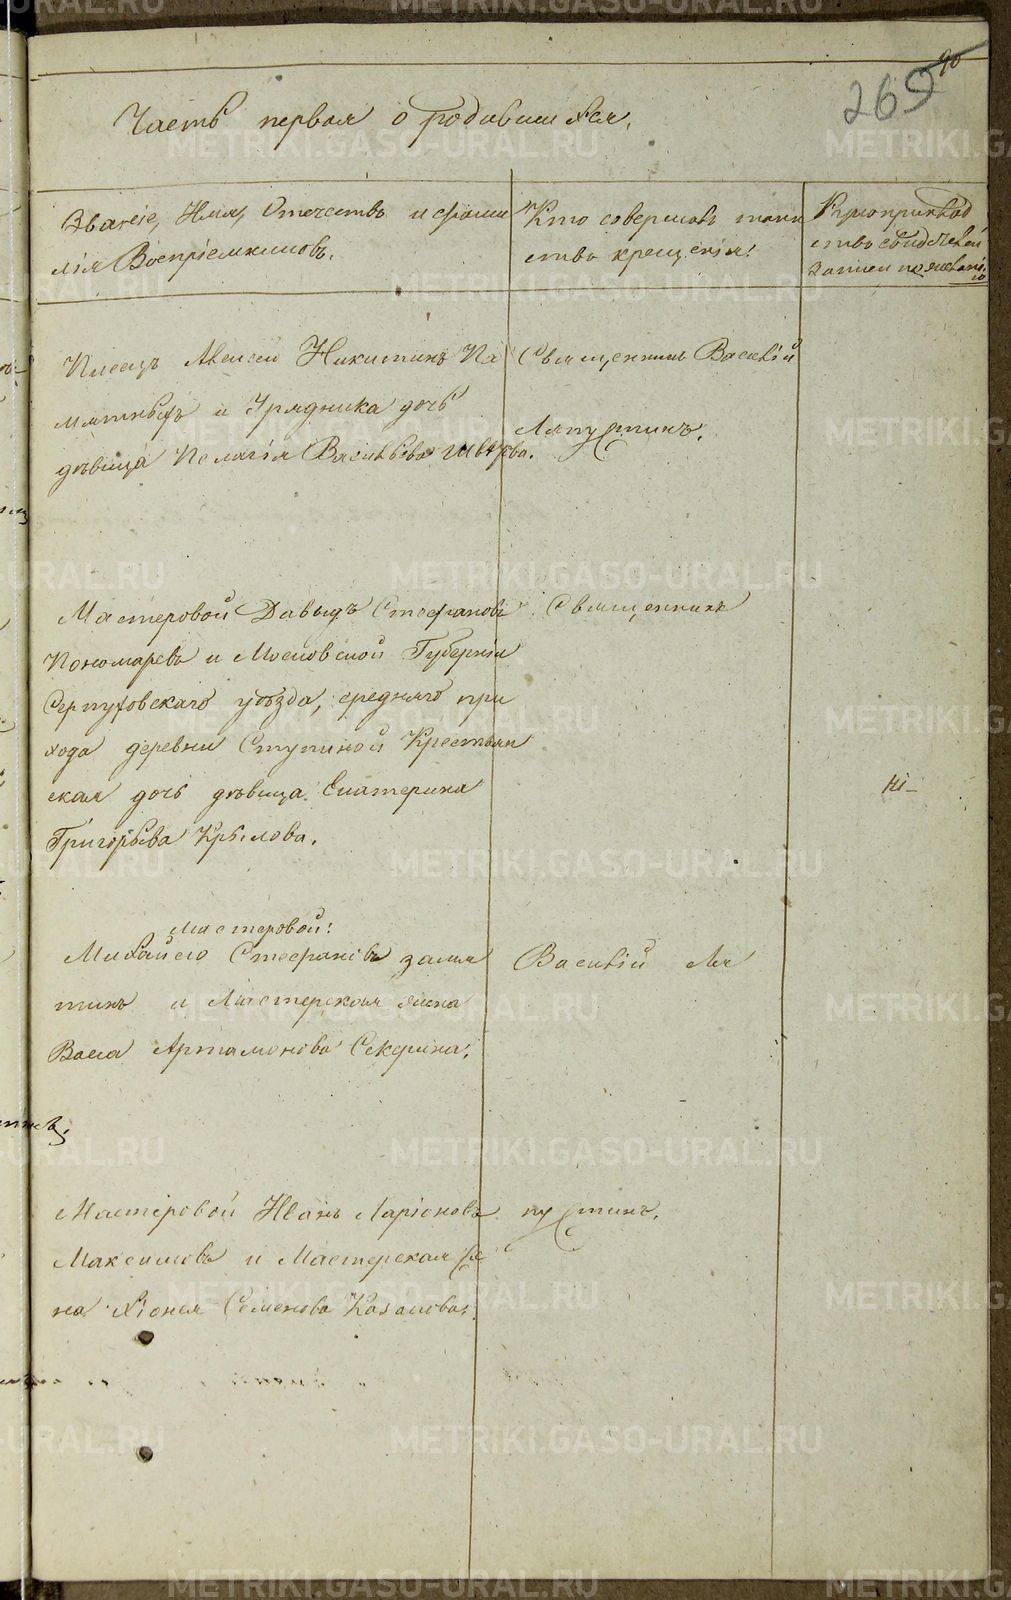 90
269
Часть первая о родившихся.
Званіе, Имя, Отечество и фами
лія Воспріемниковъ.
Кто совершалъ таин
ство крещенія:
Рукоприклад
ство свидѣтелей
записи по желані
ю
Писецъ Алексѣй Никитинъ Па
мятныхъ и Урядника дочь
дѣвица Пелагія Васильева
Священникъ Василій
Ляпустинъ.
Мастеровой Давыдъ Стефановъ
Пономаревъ и Московской Губерніи
Серпуховскаго уѣзда, средняго при
хода деревни Ступиной Крестьян
ская дочь дѣвица Екатерина
Григорьева Крылова.
Священникъ
Мастеровой:
Михайло Стефановъ Замя
тинъ и Мастерская жена
Васса Артамонова Секерина.
Василій Ля
Мастеровой Иванъ Ларіоновъ
Максимовъ и Мастерская Же
на Хіонея Семенова Казанова.
пустинъ.
METRIKI.GASO-URAL.RU